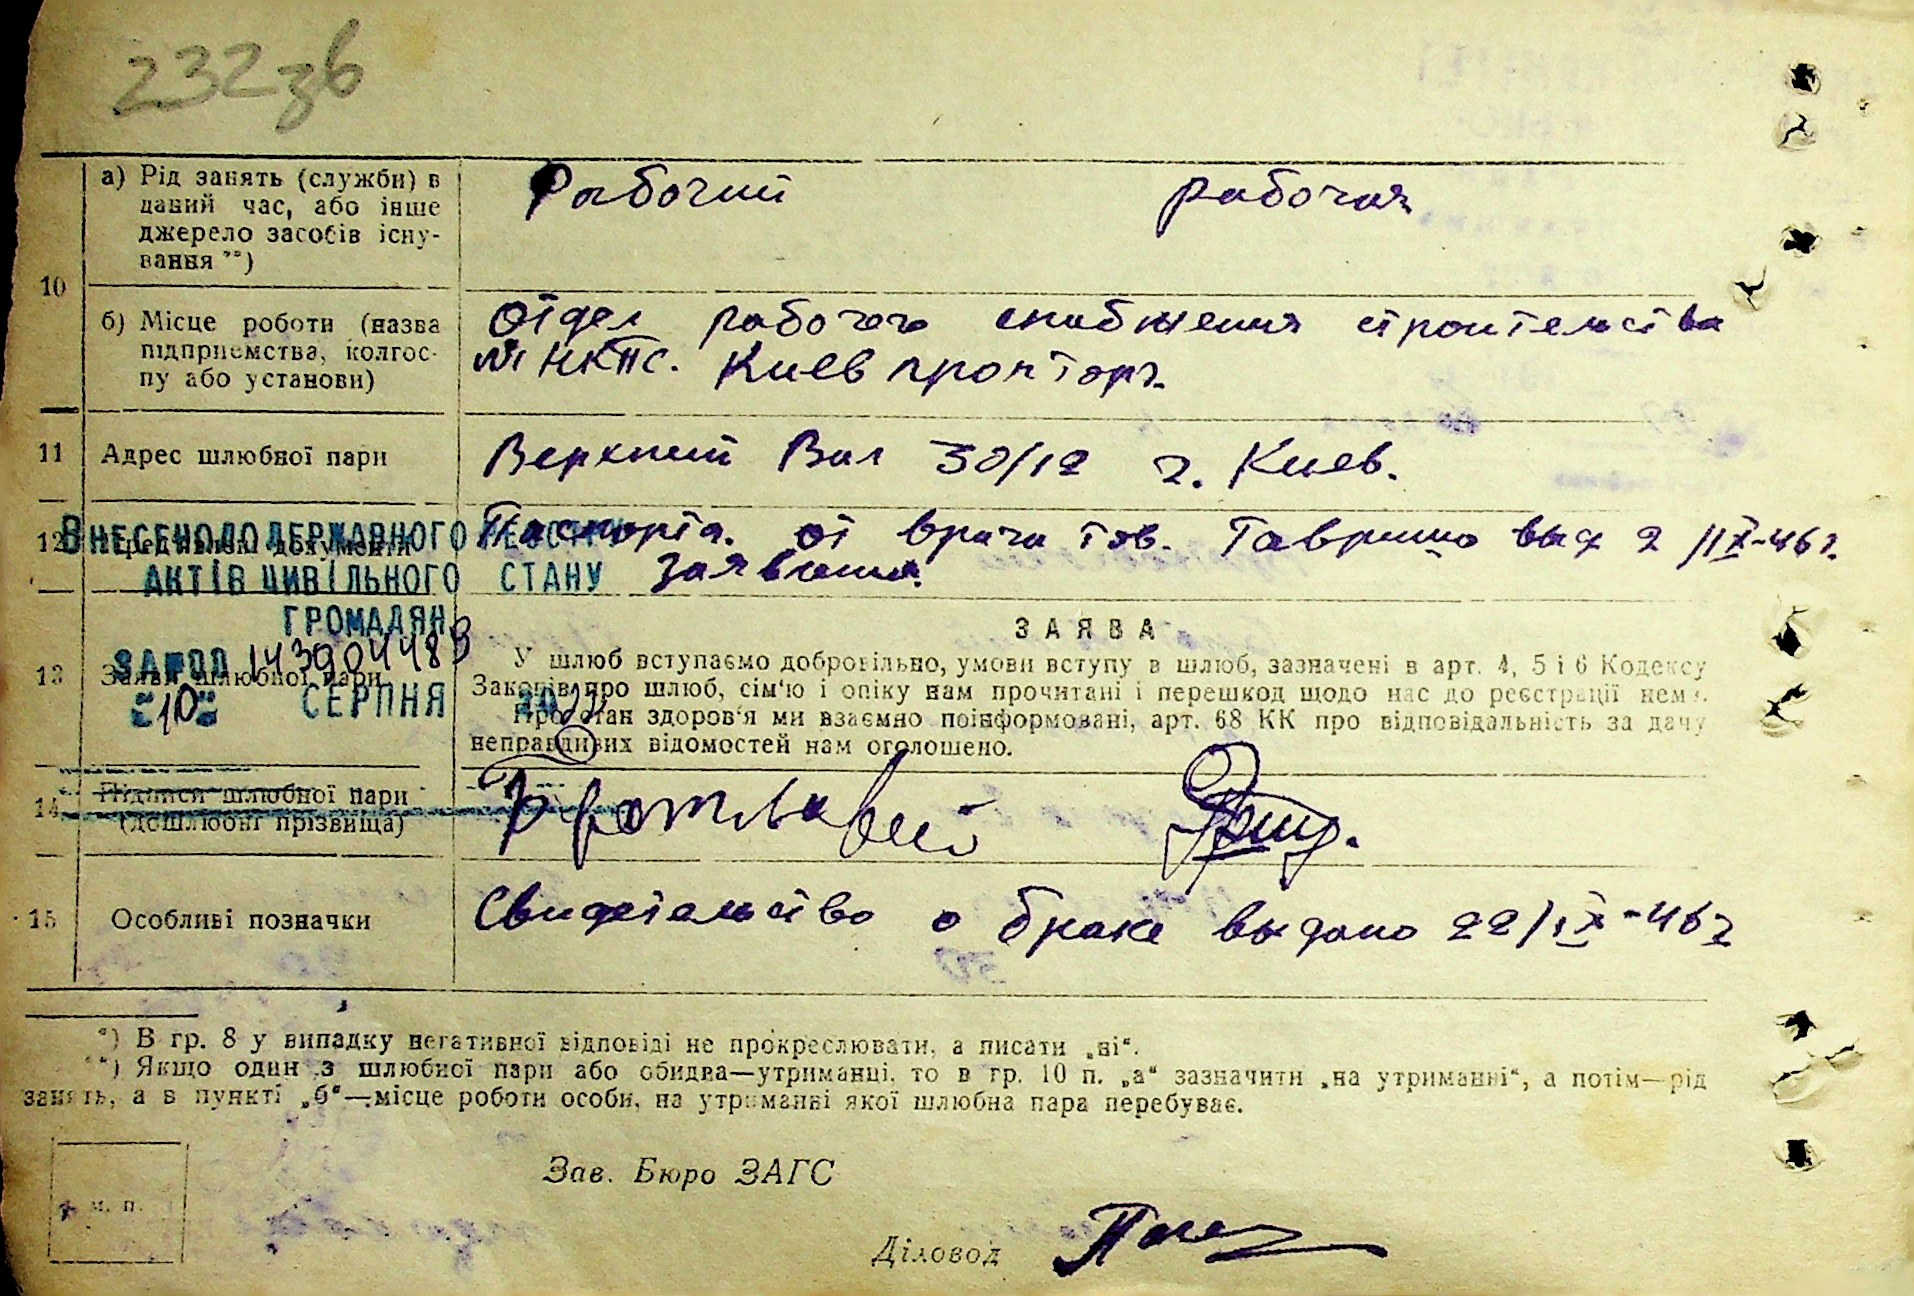 232зв
10
а) Рід занять (служби) в
даний час, або інше
джерело засобів існу-
вання **)
Рабочий рабочая
б) Місце роботи (назва
підприємства, колгос-
пу або установи)
Отдел рабочего снабжения строительства
№1 НКПС. Киев промторг.
11 Адрес шлюбної пари
Верхний Вал 30/12 г. Киев.
12 документи
Паспорта. от врача тов. Гаврише выд 2/IX-46г.
Заявления.
ВНЕСЕНО ДО ДЕРЖАВНОГО РЕЄСТРУ
АКТІВ ЦИВІЛЬНОГО СТАНУ
ГРОМАДЯН
"10" СЕРПНЯ
13 Заява шлюбної пари
ЗАЯВА
У шлюб вступаємо добровільно, умови вступу в шлюб, зазначені в арт. 4, 5 і 6 Кодексу
Законів про шлюб, сім'ю і опіку нам прочитані і перешкод щодо нас до реєстрації нема.
Про стан здоров'я ми взаємно поінформовані, арт. 68 КК про відповідальність за дачу
неправдивих відомостей нам оголошено.
14 Підписи шлюбної пари
(дошлюбні прізвища)
15 Особливі позначки
Свидетельство о браке выдано 22/IX-46г
*) В гр. 8 у випадку негативної відповіді не прокреслювати, а писати „ні“.
**) Якщо один з шлюбної пари або обидва—утриманці, то в гр. 10 п. „а“ зазначити „на утриманні“, а потім—рід
занять, а в пункті „б“—місце роботи особи, на утриманні якої шлюбна пара перебуває.
Зав. Бюро ЗАГС
м. п.
Діловод